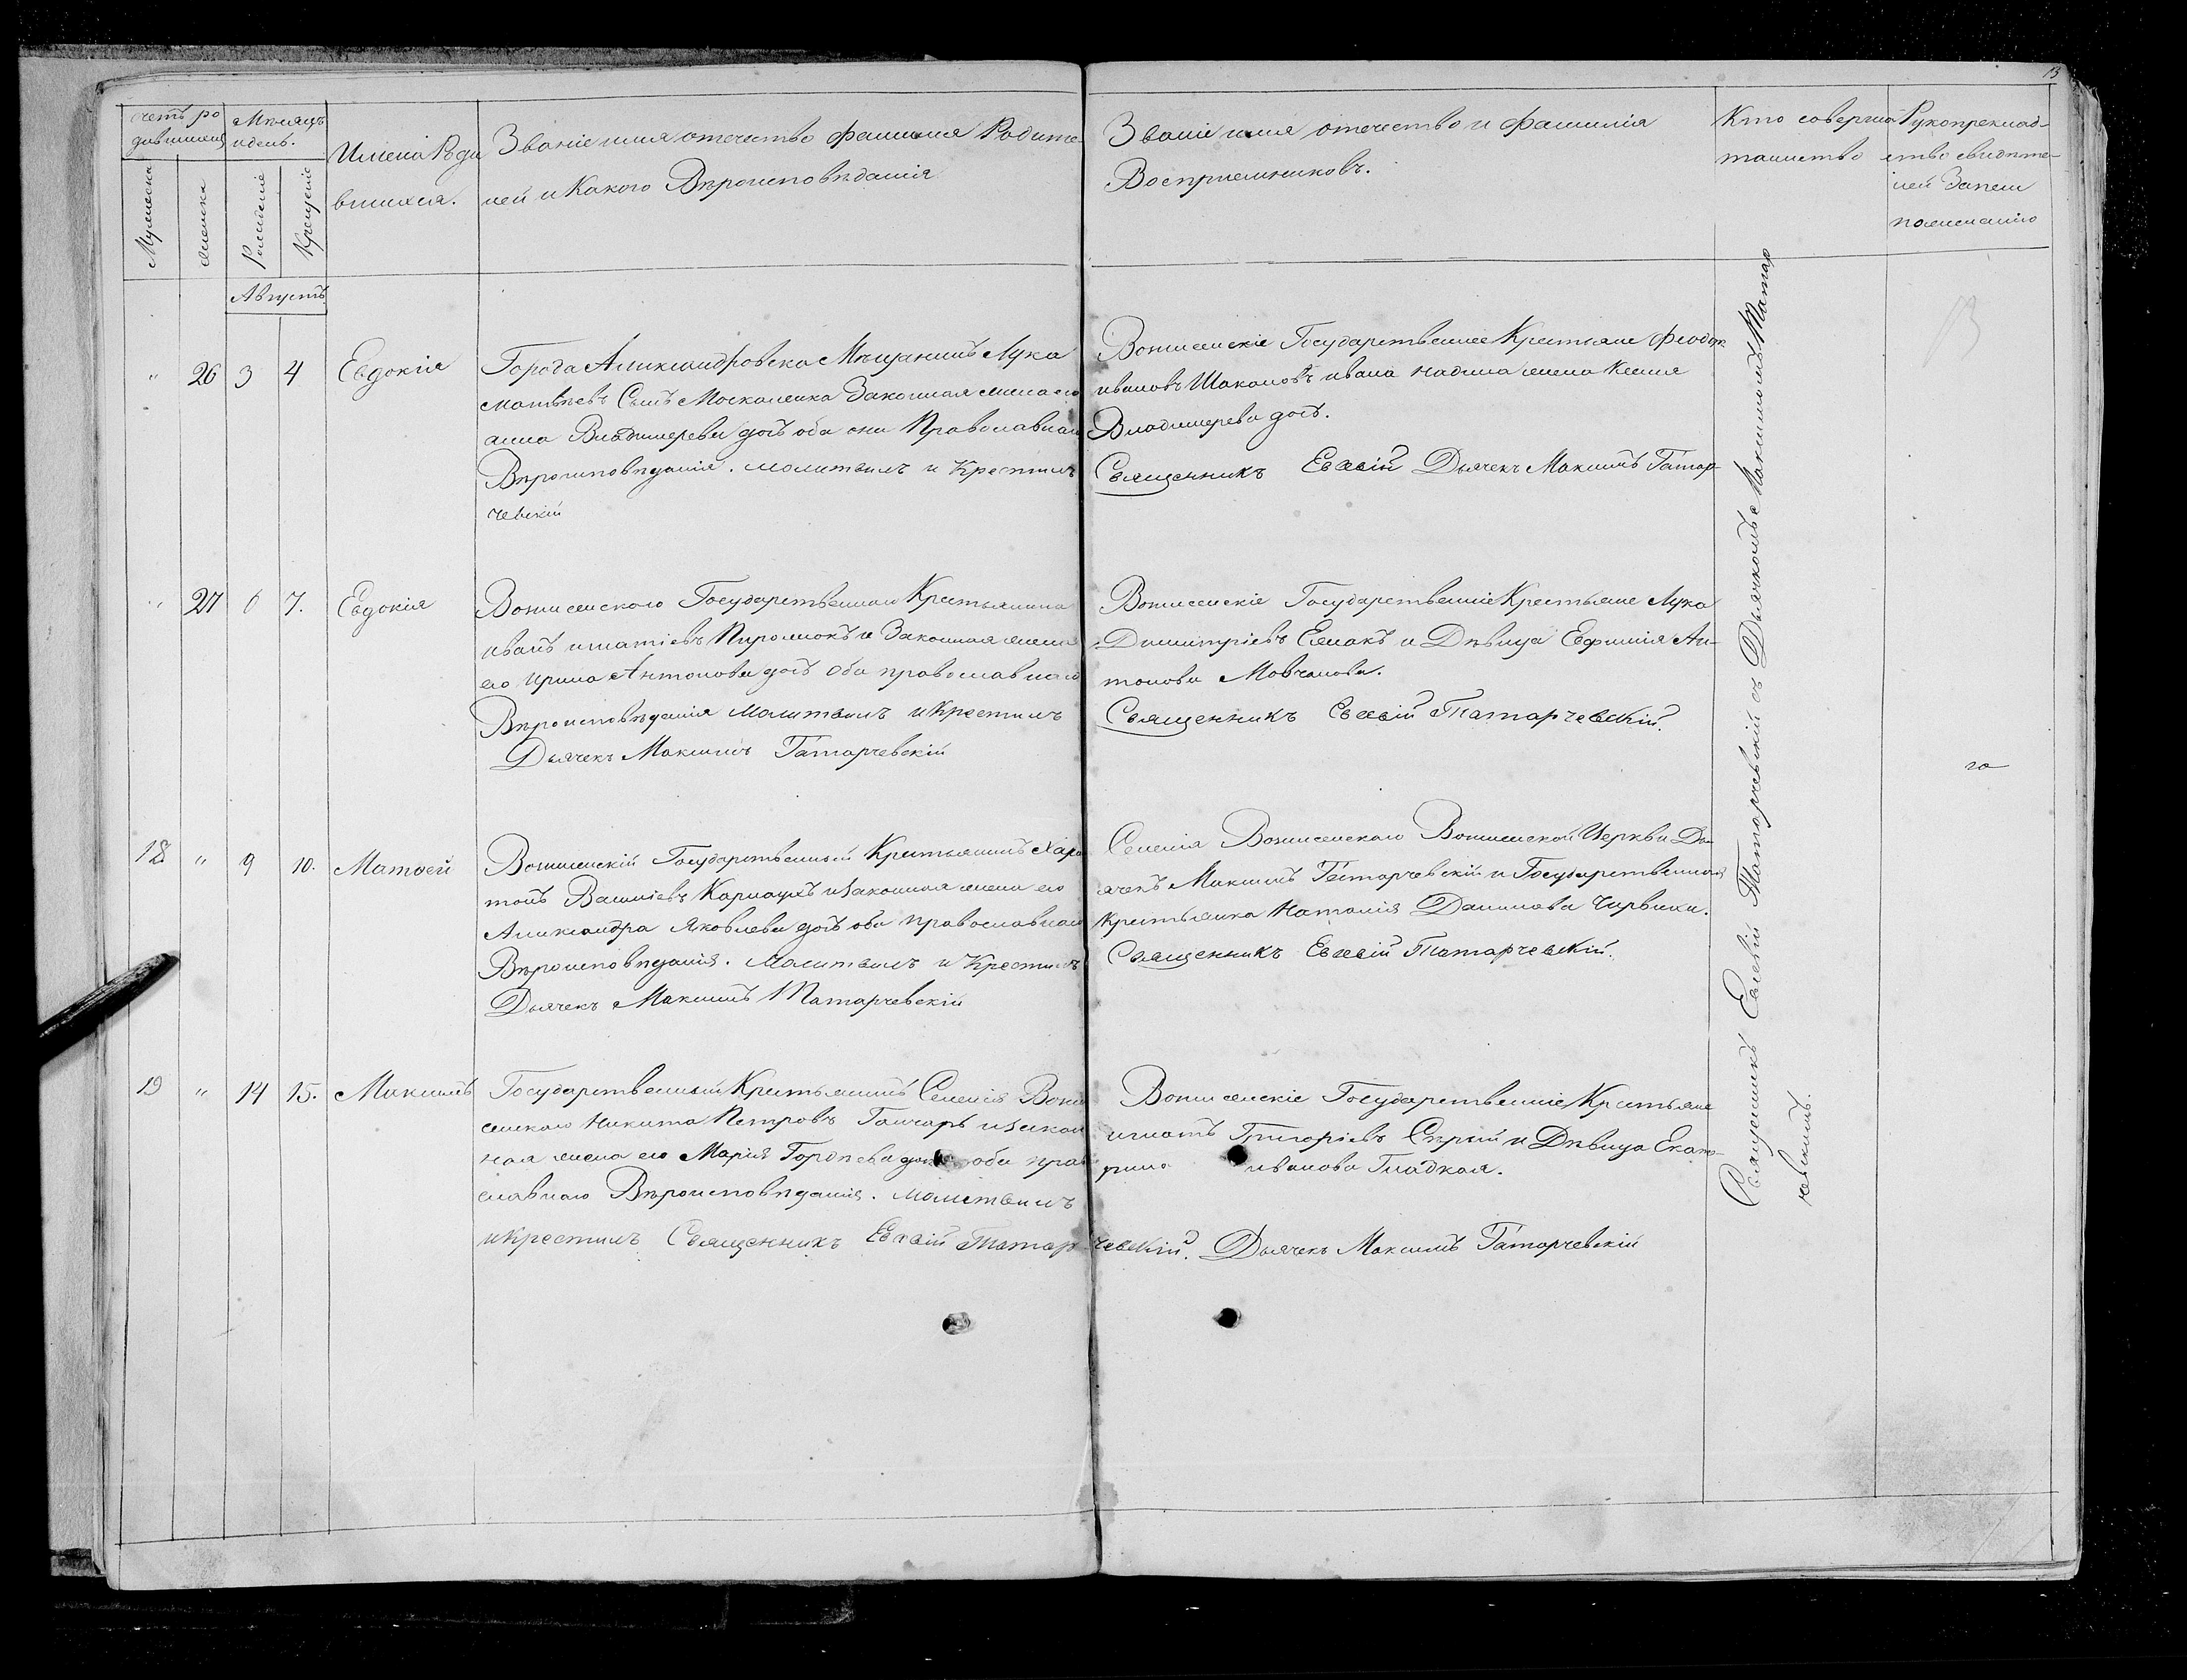 13
счетъ ро
дившихся
Мѣсяцъ
и день.
Мужеска
женска
Рожденіе
Крещеніе
Имена Роди
вшихся.
Званіе имя отечество фамилія Родите-
лей и Какого Вѣроисповѣданія
Званіе имя отечество и Фамилія
Воспріемниковъ.
Кто соверша
таинство
Рукоприклад-
ство свидѣте-
лей Записи
по желанію
Августъ
„ 26 3 4 Евдокія
Города Александровска Мѣщанинъ Лука
Матвѣевъ Сынъ Москаленка Законная жена его
анна Владимерева дочь оба они Православнаго
Вѣроисповѣданія. молитвилъ и Крестилъ
Вознесенскіе Государственные Крестьяне Феодоръ
ивановъ ивана жена Ксенія
Владимерева дочь.
Священникъ Евсевій Дьячекъ Максимъ Татар-
чевскій
„ 27 6 7. Евдокія
Вознесенского Государственнаго Крестьянина
иванъ игнатіевъ и Законная жена
его Ирина Антонова дочь Оба православнаго
Вѣроисповѣданія Молитвилъ и Крестилъ
Дьячекъ Максимъ Татарчевскій
Вознесенскіе Государственніе Крестьяне Лука
Димитріевъ и Дѣвица Евфимія Ан-
тонова Мовчанова.
Священникъ Евсевій Татарчевскій.
18 „ 9 10. Матвей
Вознесенскій Государственной Крестьянинъ Хари
тонъ Василіевъ и Законная жена его
Александра Яковлева дочь оба православнаго
Вѣроисповѣданія. Молитвилъ и Крестилъ
Дьячекъ Максимъ Татарчевскій
Селенія Вознесенскаго Вознесенской Церкви Дь-
ячекъ Максимъ Татарчевскій и Государственная
Крестьянка Наталія Данилова
Священникъ Евсевій Татарчевскій.
19 „ 14 15. Максимъ
Государственный Крестьянинъ Селенія Возне
сенскаго Никита Петровъ Ганчаръ и Закон
ная жена его Марія Гордѣева дочь оба право
славнаго Вѣроисповѣданія. Молитвилъ
и Крестилъ Священникъ Евсевій Татарчевскій. Дьячекъ Максимъ Татарчевскій
Вознесенскіе Государственніе Крестьяне
игнатъ Григоріевъ Сѣрый и Дѣвица Екате-
рина иванова Гладкая.
Священникъ Евсевій Татарчевскій съ Дьячкомъ Максимомъ Татар
чевскимъ.